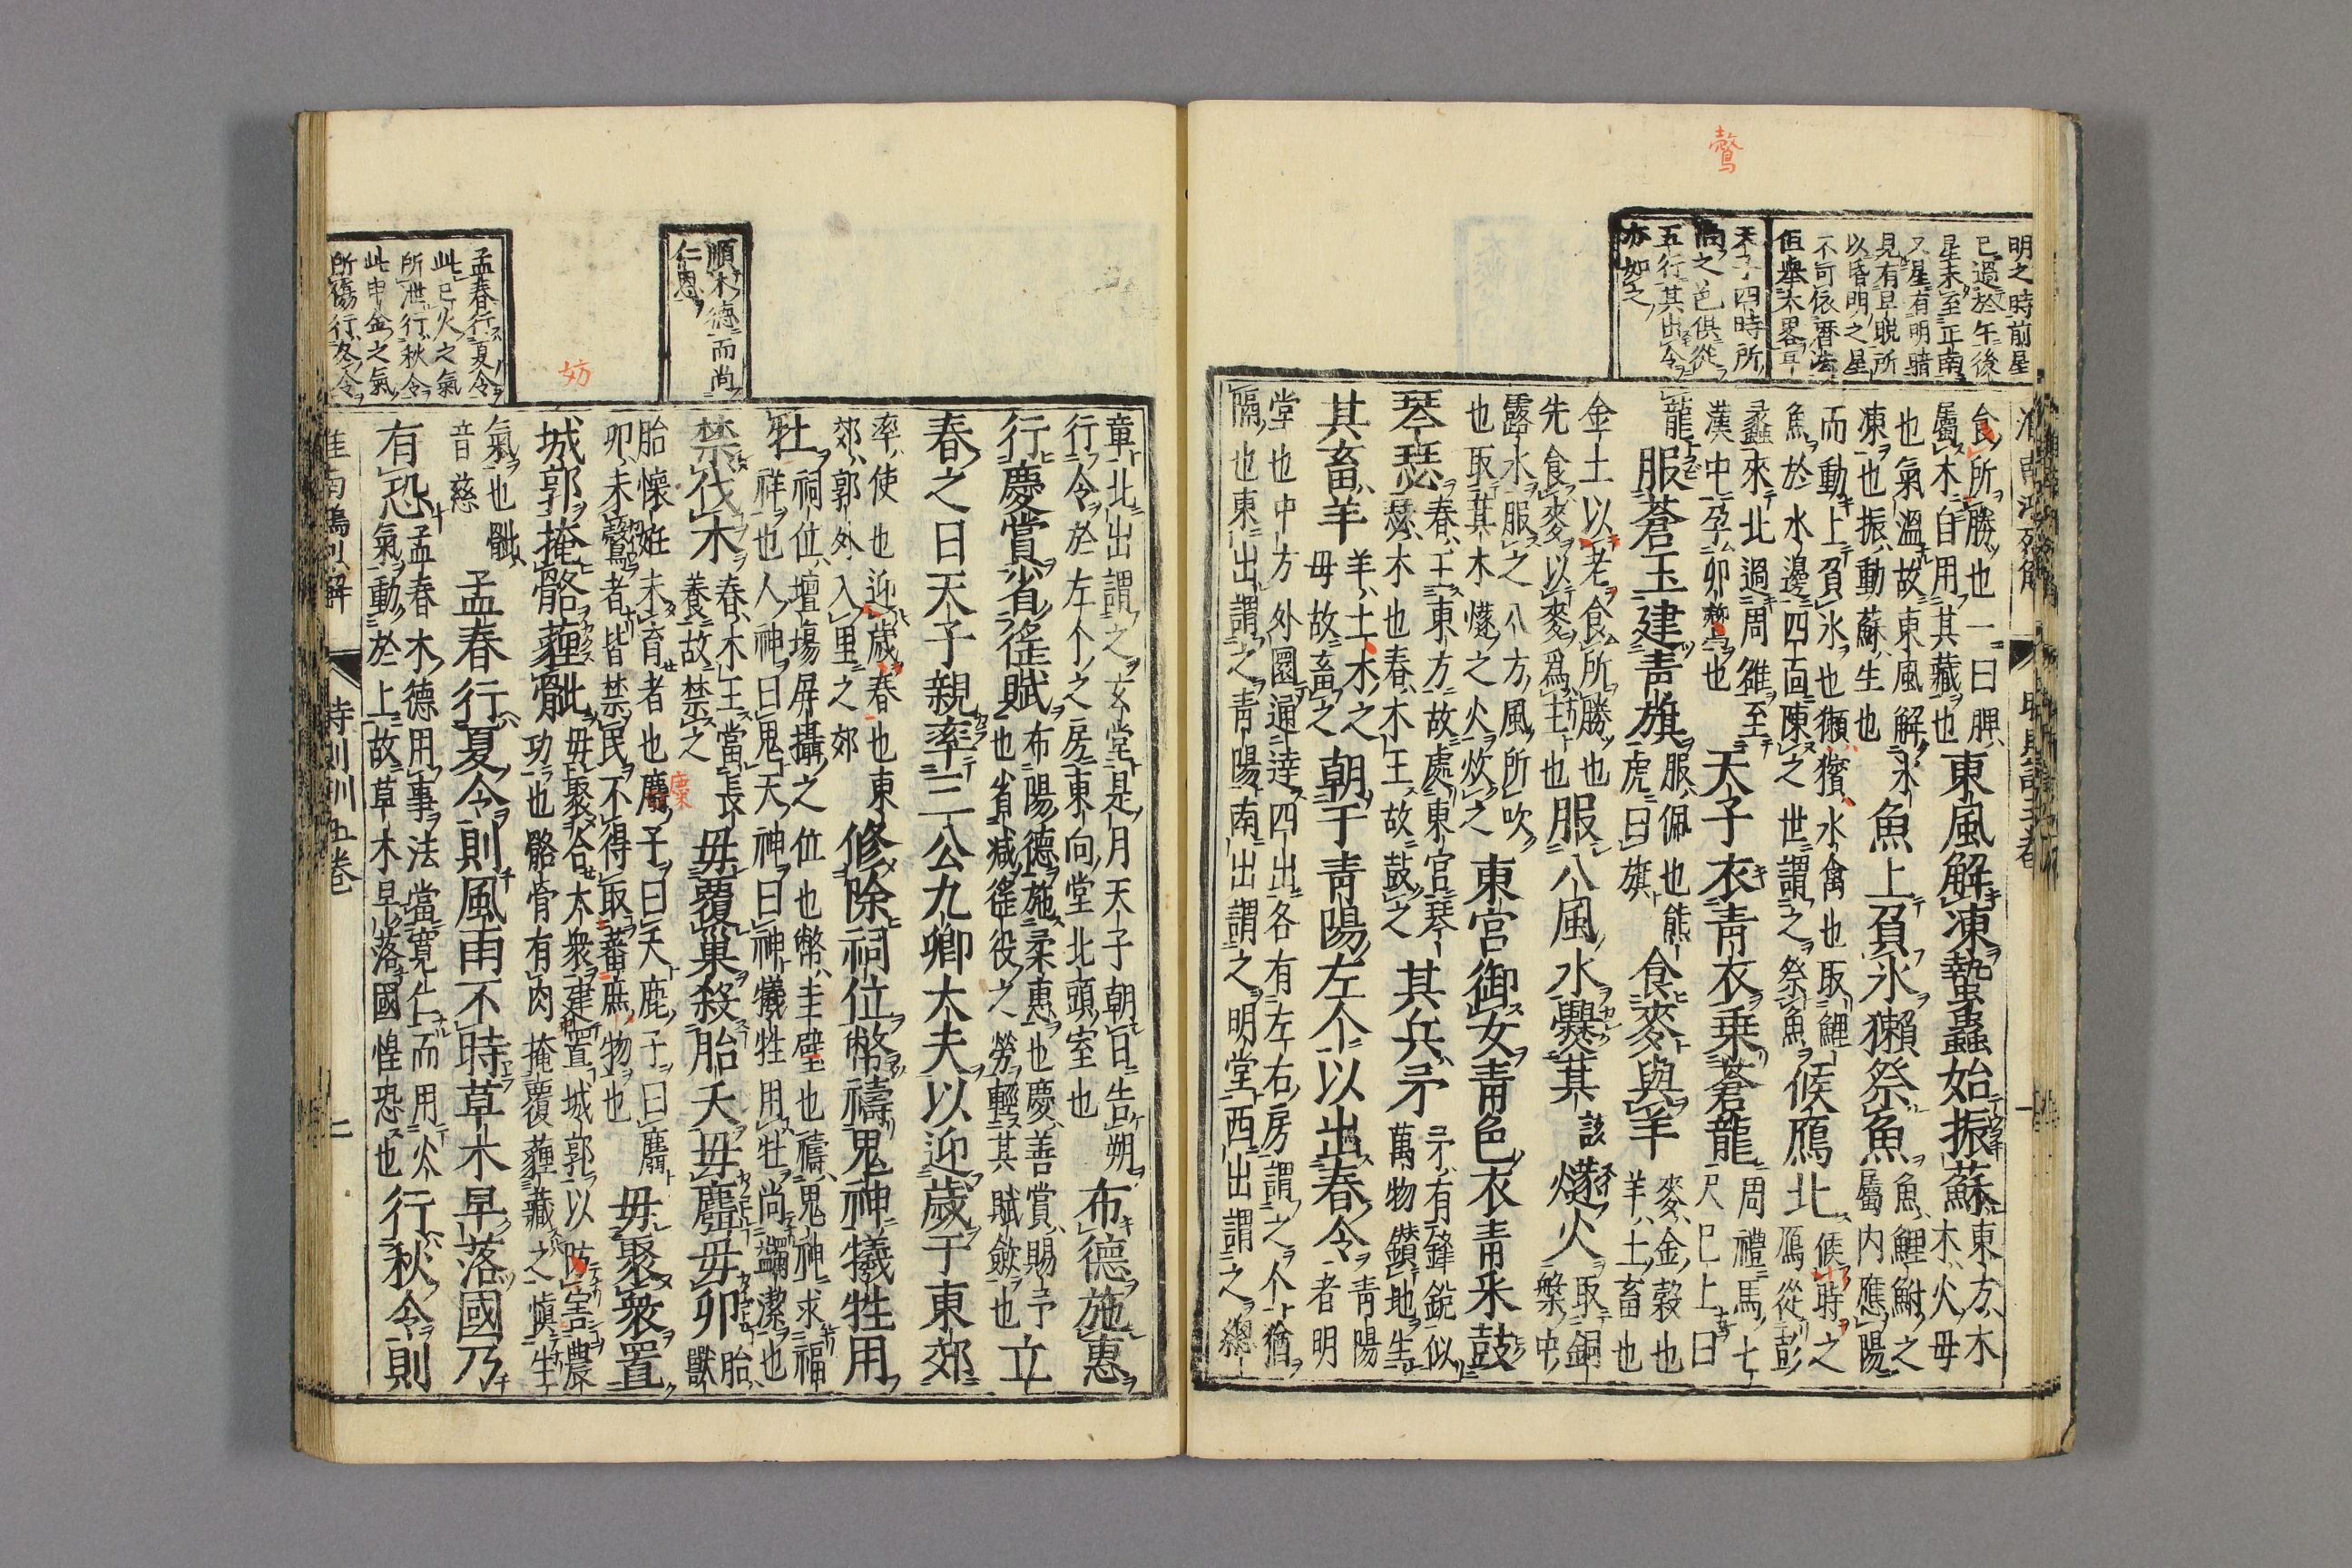 鷟
明之時前星
已過於午後
星未至正南
又星有明暗
見有早晚所
以昏明之星
不可依曆法
但舉大畧耳
天子四時所
五行其出令
亦如之
食所勝也一曰脾
東風解凍蟄蟲始振蘇
東方木
木火母
屬木自用其藏也
也氣溫故東風解氷
凍也振動蘇生也
魚上負氷獺祭魚
魚鯉鮒之
屬内應陽
而動上負氷也獺獱水禽也取鯉
魚於水邊四面陳之世謂之祭魚
候鴈北
候時之
鴈從彭
蠡來北過周雒至
漢中孕卵也
天子衣青衣乗蒼龍
周禮馬七
尺已上曰
龍
服蒼玉建青旗
服佩也熊
虎曰旗
食麥與羊
麥金穀也
羊土畜也
金土以老食所勝也
先食麥以麥爲主也
服八風水爨萁
該
燧火
取銅
槃中
露水服之八方風所吹
也取萁木燧之火炊之
東宮御女青色衣青采鼓
琴瑟
春王東方故處東宮琴
瑟木也春木王故鼓之
其兵矛
矛有鋒銳似
萬物鑚地生
其畜羊
羊土木之
母故畜之
朝于青陽左个以出春令
青陽
者明
堂也中方外圜通達四出各有左右房謂之个猶
隔也東出謂之青陽南出謂之明堂西出謂之總
章北出謂之玄堂是月天子朝日告朔
行令於左个之房東向堂北頭室也
布德施惠
行慶賞省徭賦
布陽德施柔惠也慶善賞賜予
也省減徭役之勞輕其賦斂也
立
春之日天子親率三公九卿大夫以迎歲于東郊
率使也迎歲春也東
郊郭外八里之郊
修除祠位幣禱鬼神犧牲用
牡
祠位壇場屏攝之位也幣圭璧也禱鬼神求福
祥也人神曰鬼天神曰神犧牲用牡尚蠲潔也
禁伐木
春木王當長
養故禁之
毋覆巢殺胎夭毋麛毋卵
胎
獸
胎懷妊未育者也麛子曰夭鹿子曰麛
卵未鷇者皆禁民不得取蕃庶物也
毋聚衆置
城郭掩骼薶骴
毋聚合大衆建置城郭以防害農
功也骼骨有肉掩覆薶藏之愼生
氣也骴
音慈
孟春行夏令則風雨不時草木早落國乃
有恐
孟春木德用事法當寬仁而用火
氣動於上故草木早落國惶恐也
行秋令則
順木德而尚
仁恩
妨
孟春行夏令
此巳火之氣
所泄行秋令
此申金之氣
所傷行冬令
時則訓五卷
二